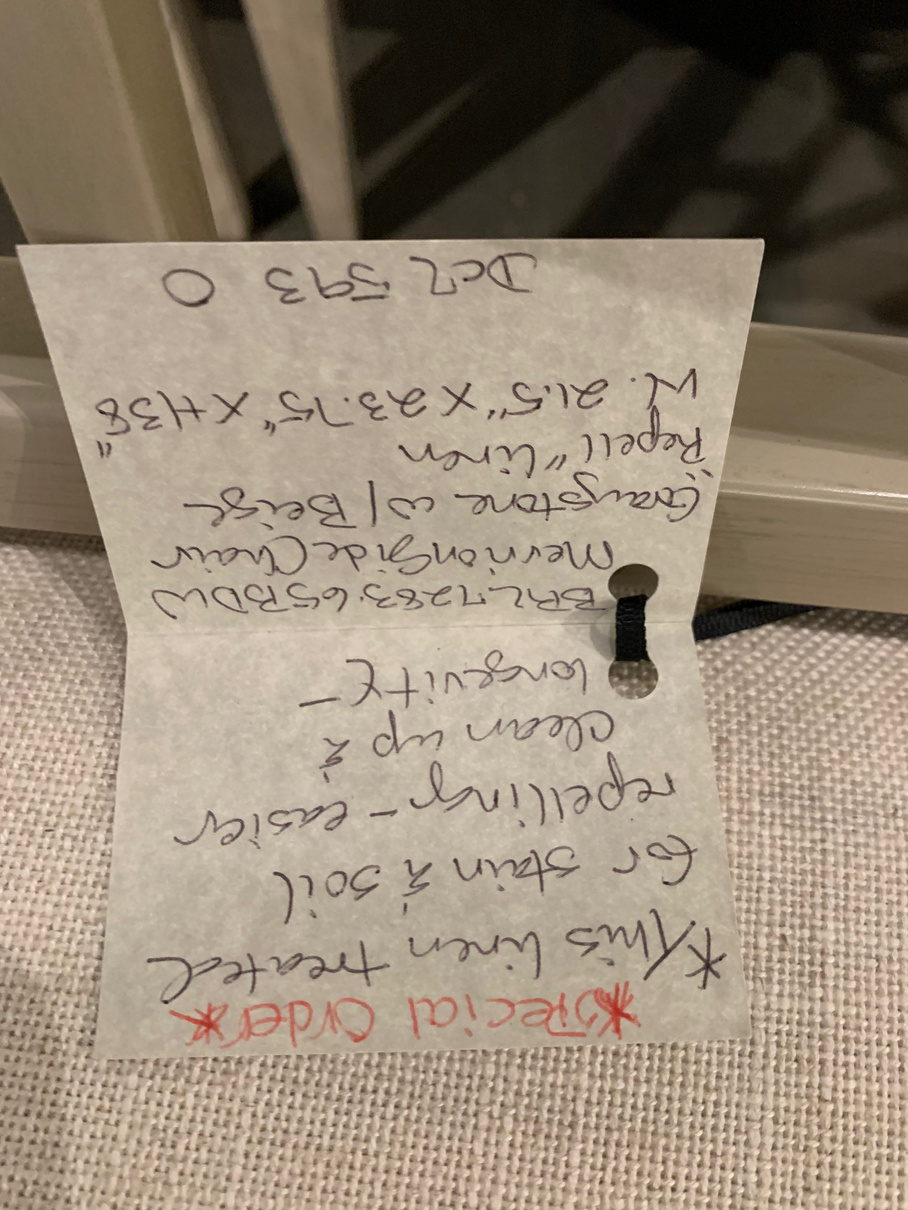 *Special Order*
*This linen treated
for stain & soil
repelling - easier
clean up &
longevity -
BRL7283.65BDW
Merrion Side Chair
Graystone w/ Beige
"Repell" linen
W. 21.5" x 23.75" x H38"
DCL 593 0